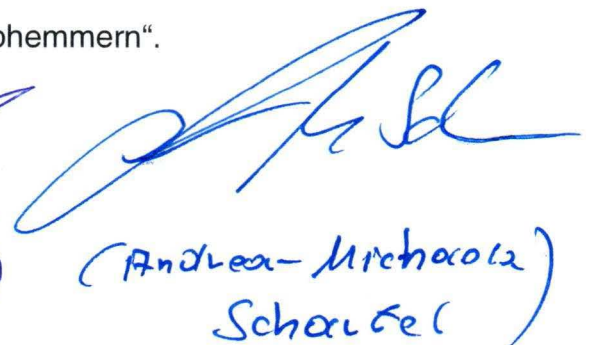 ohemmern“.
(Andrea-Michaela)
Schaufel